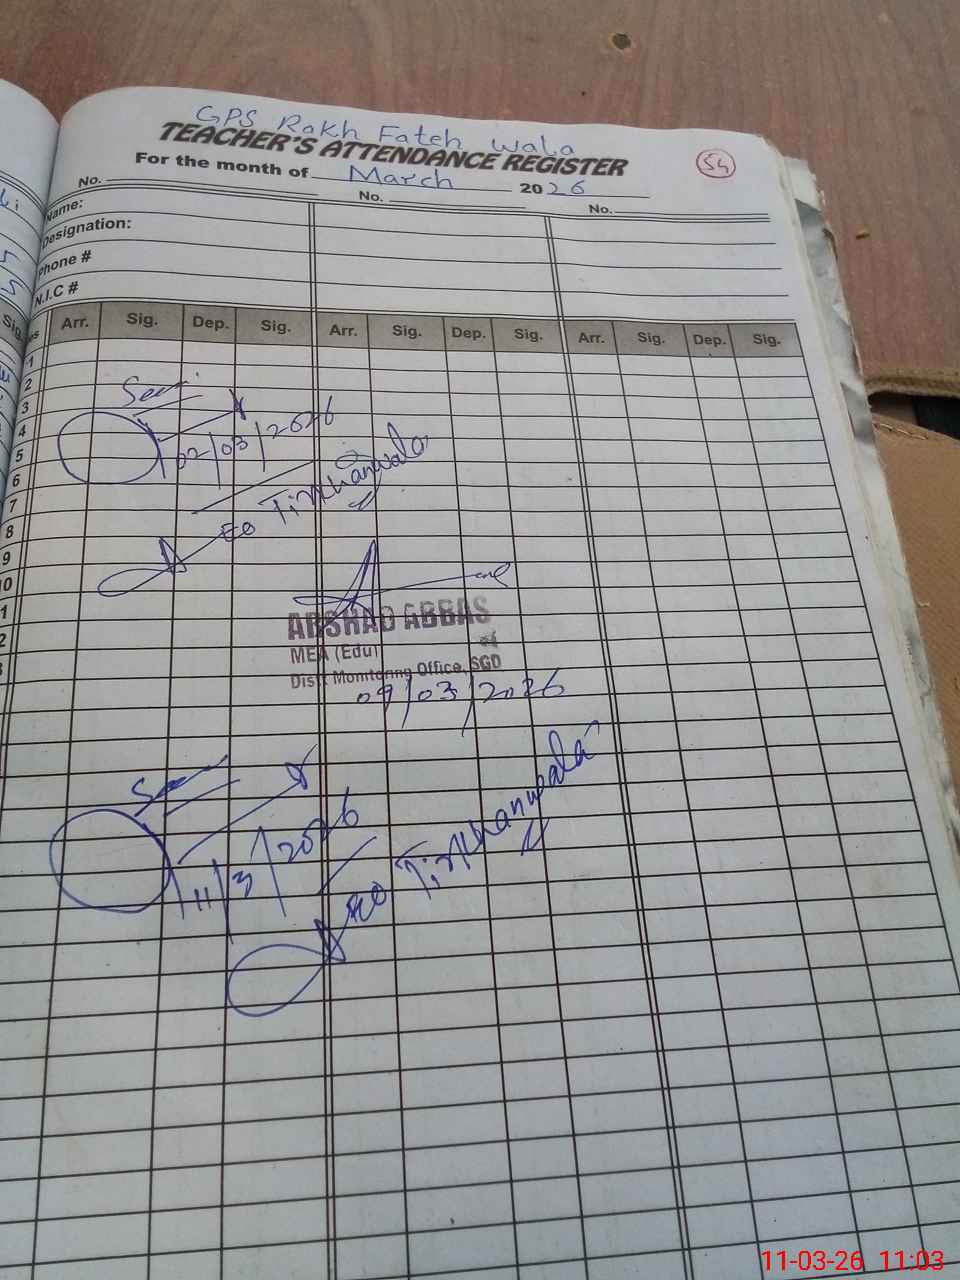 GPS Rakh Fateh Wala
TEACHER'S ATTENDANCE REGISTER
54
For the month of March 2026
No. No. No.
Name:
Designation:
Phone #
N.I.C #
Arr. Sig. Dep. Sig. Arr. Sig. Dep. Sig. Arr. Sig. Dep. Sig.
1
2
3
4
5
6
7
8
9
10
Seen
02/03/2026
EO Tirkhanwala
ARSHAD ABBAS
MEA (Edu)
Distt Monitoring Office, SGD
09/03/2026
Seen
11/3/2026
EO Tirkhanwala
11-03-26 11:03